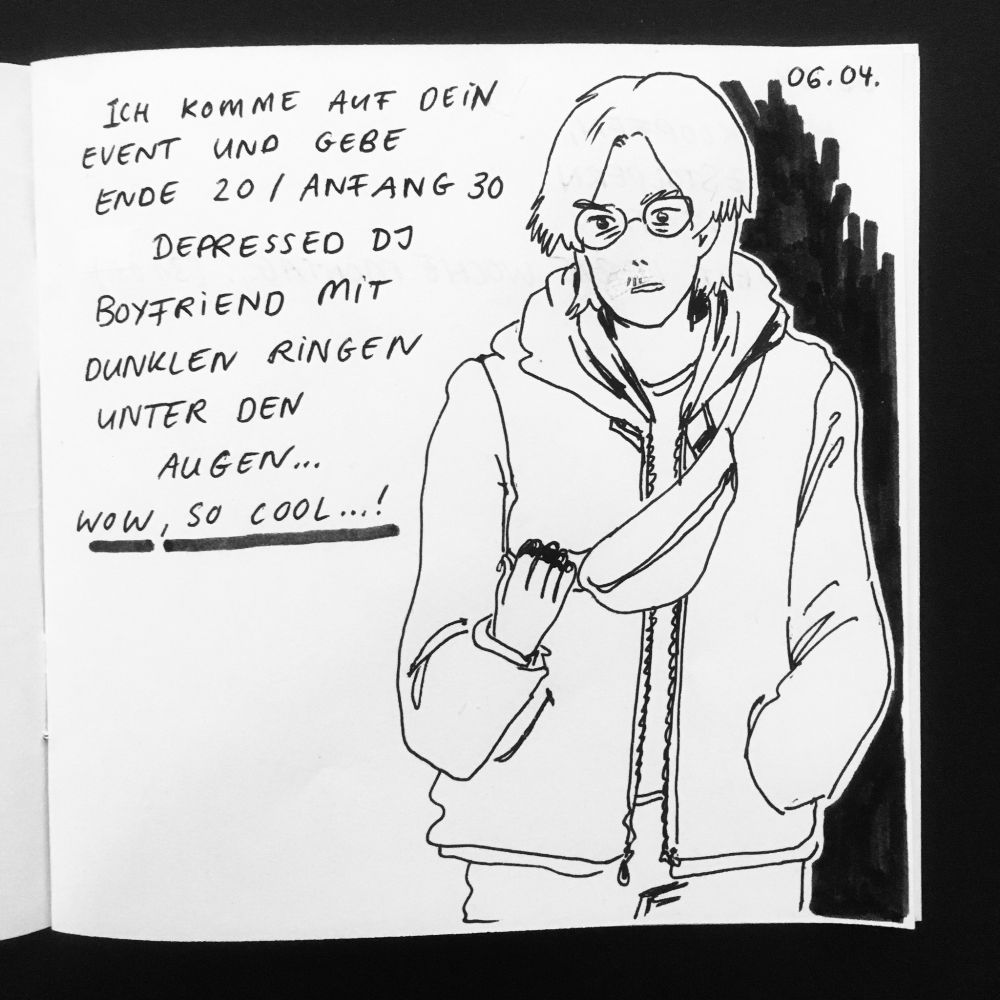 06.04.
ICH KOMME AUF DEIN
EVENT UND GEBE
ENDE 20 / ANFANG 30
DEPRESSED DJ
BOYFRIEND MIT
DUNKLEN RINGEN
UNTER DEN
AUGEN...
WOW, SO COOL...!